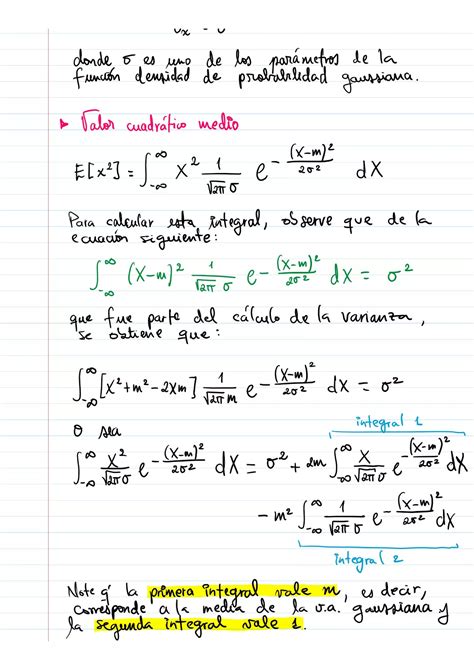 donde σ es uno de los parámetros de la
función densidad de probabilidad gaussiana.
▸ Valor cuadrático medio
E[x²] = ∫_{-∞}^{∞} x² 1/(√2π σ) e^{-(x-m)²/2σ²} dx
Para calcular esta integral, observe que de la
ecuación siguiente:
∫_{-∞}^{∞} (x-m)² 1/(√2π σ) e^{-(x-m)²/2σ²} dx = σ²
que fue parte del cálculo de la varianza,
se obtiene que:
∫_{-∞}^{∞} [x²+m²-2xm] 1/(√2π m) e^{-(x-m)²/2σ²} dx = σ²
o sea
integral 1
∫_{-∞}^{∞} x²/(√2π σ) e^{-(x-m)²/2σ²} dx = σ² + 2m ∫_{-∞}^{∞} x/(√2π σ) e^{-(x-m)²/2σ²} dx
- m² ∫_{-∞}^{∞} 1/(√2π σ) e^{-(x-m)²/2σ²} dx
integral 2
Note q' la primera integral vale m, es decir,
corresponde a la media de la v.a. gaussiana y
la segunda integral vale 1.